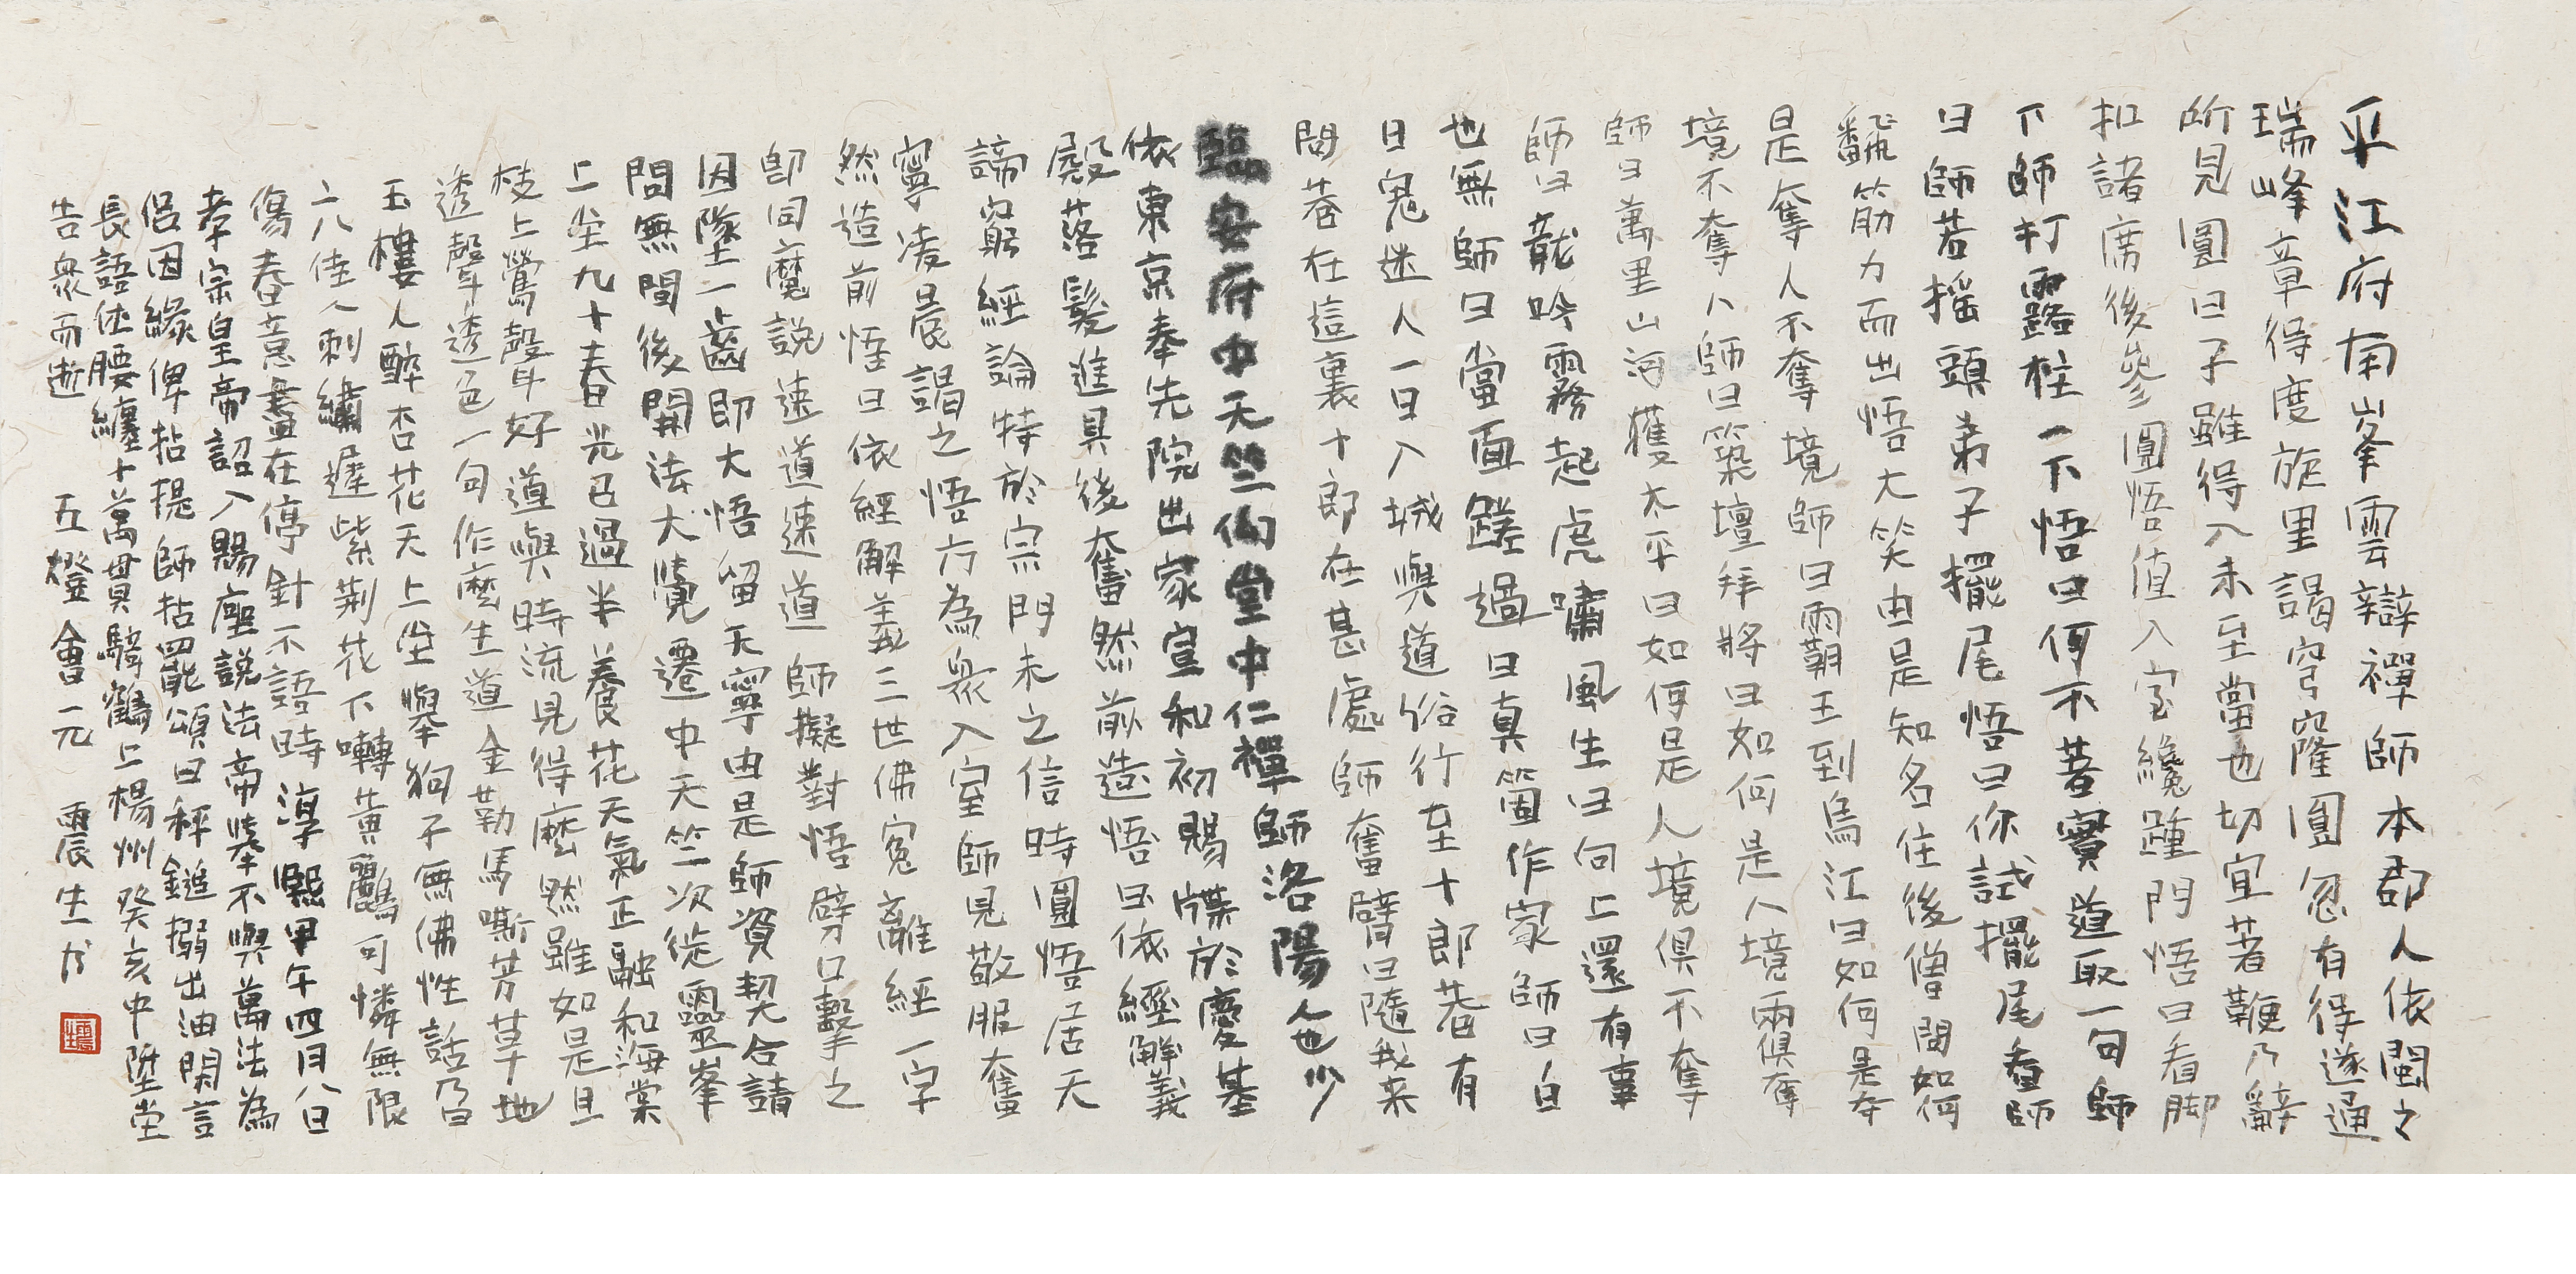 平江府南峯雲辯禪師本郡人依閩之
瑞峰章得度旋里謁穹窿圓忽有得遂通
所見圓曰子雖得入未至當也切宜著鞭乃辭
扣諸席後參圓悟值入室纔踵門悟曰看脚
下師打露柱一下悟曰何不著實道取一句師
曰師若搖頭弟子擺尾悟曰你試擺尾看師
翻筋力而出悟大笑由是知名住後僧問如何
是奪人不奪境師曰霸王到烏江曰如何是奪
境不奪人師曰築壇拜將曰如何是人境兩俱奪
師曰萬里山河獲太平曰如何是人境俱不奪
師曰龍吟霧起虎嘯風生曰向上還有事
也無師曰當面蹉過曰真箇作家師曰白
日鬼迷人一日入城與道俗行至十郎巷有
問巷在這裏十郎在甚處師奮臂曰隨我來
臨安府中天竺𠆳堂中仁禪師洛陽人也少
依東京奉先院出家宣和初賜牒於慶基
殿落髮進具後奮然前造悟曰依經解義
諦窮經論特於宗門未之信時圓悟居天
寧凌晨謁之悟方為衆入室師見敬服奮
然造前悟曰依經解義三世佛冤離經一字
即同魔說速道速道師擬對悟劈口擊之
因墜一齒即大悟留天寧由是師資契合請
問無間後開法大覺遷中天竺次徙靈峯
上堂九十春光已過半養花天氣正融和海棠
枝上鶯聲好道與時流見得麼然雖如是且
透聲透色一句作麼生道金勒馬嘶芳草地
玉樓人醉杏花天上堂舉狗子無佛性話乃曰
六八佳人刺繡遲紫荊花下囀黃鸝可憐無限
傷春意盡在停針不語時淳熙甲午四月八日
孝宗皇帝詔入賜座說法帝舉不與萬法為
侶因緣俾拈提師拈罷頌曰秤鎚搦出油閑言
長語休腰纏十萬貫騎鶴上楊州癸亥中陞堂
告衆而逝 五燈會元 震生书